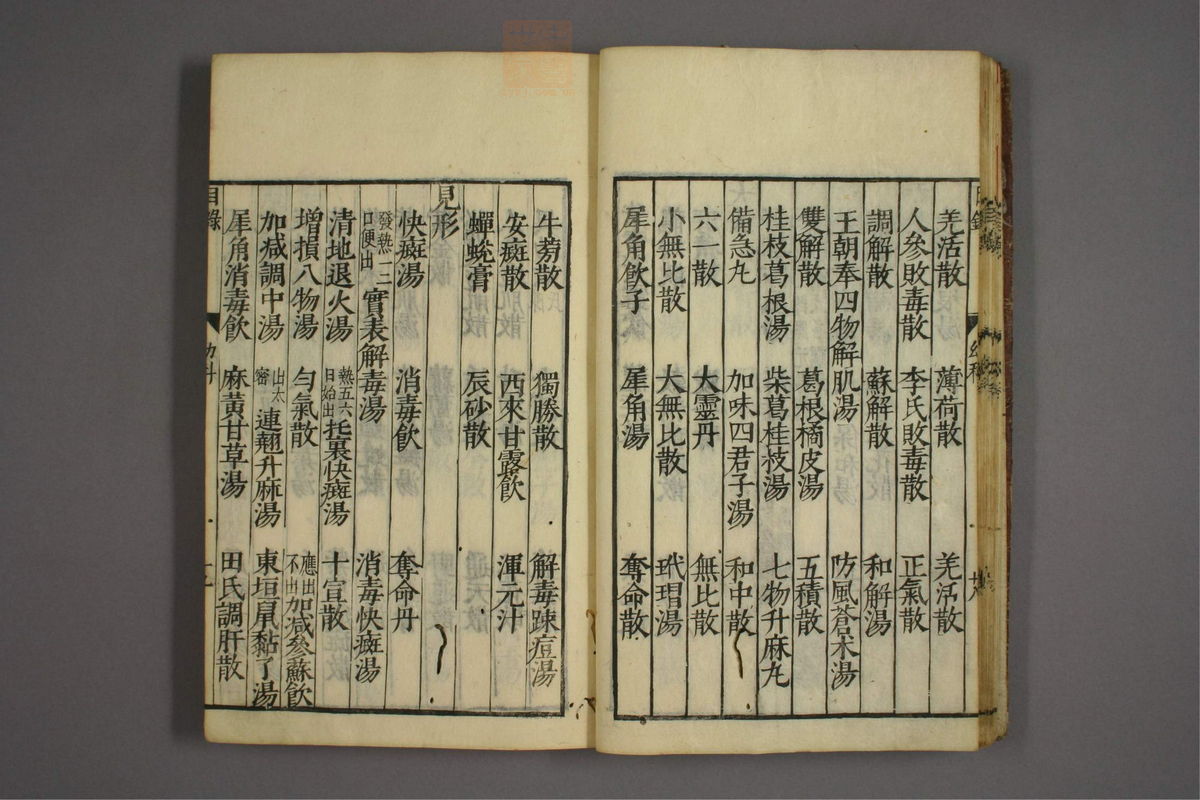 羌活散 薄荷散 羌活散
人參敗毒散 李氏敗毒散 正氣散
調解散 蘇解散 和解湯
王朝奉四物解肌湯 防風蒼朮湯
雙解散 葛根橘皮湯 五積散
桂枝葛根湯 柴葛桂枝湯 七物升麻丸
備急丸 加味四君子湯 和中散
六一散 大靈丹 無比散
小無比散 大無比散 玳瑁湯
犀角飲子 犀角湯 奪命散
牛蒡散 獨勝散 解毒踈痘湯
安癍散 西來甘露飲 渾元汁
蟬蛻膏 辰砂散
見形
快癍湯 消毒飲 奪命丹
發熱一二口便出 實表解毒湯 消毒快癍湯
清地退火湯 熱五六日始出 托裏快癍湯 十宣散
增損八物湯 勻氣散 應出不出 加減參蘇飲
加減調中湯 出太密 連翹升麻湯 東垣鼠黏子湯
犀角消毒飲 麻黃甘草湯 田氏調肝散
目錄 幼科